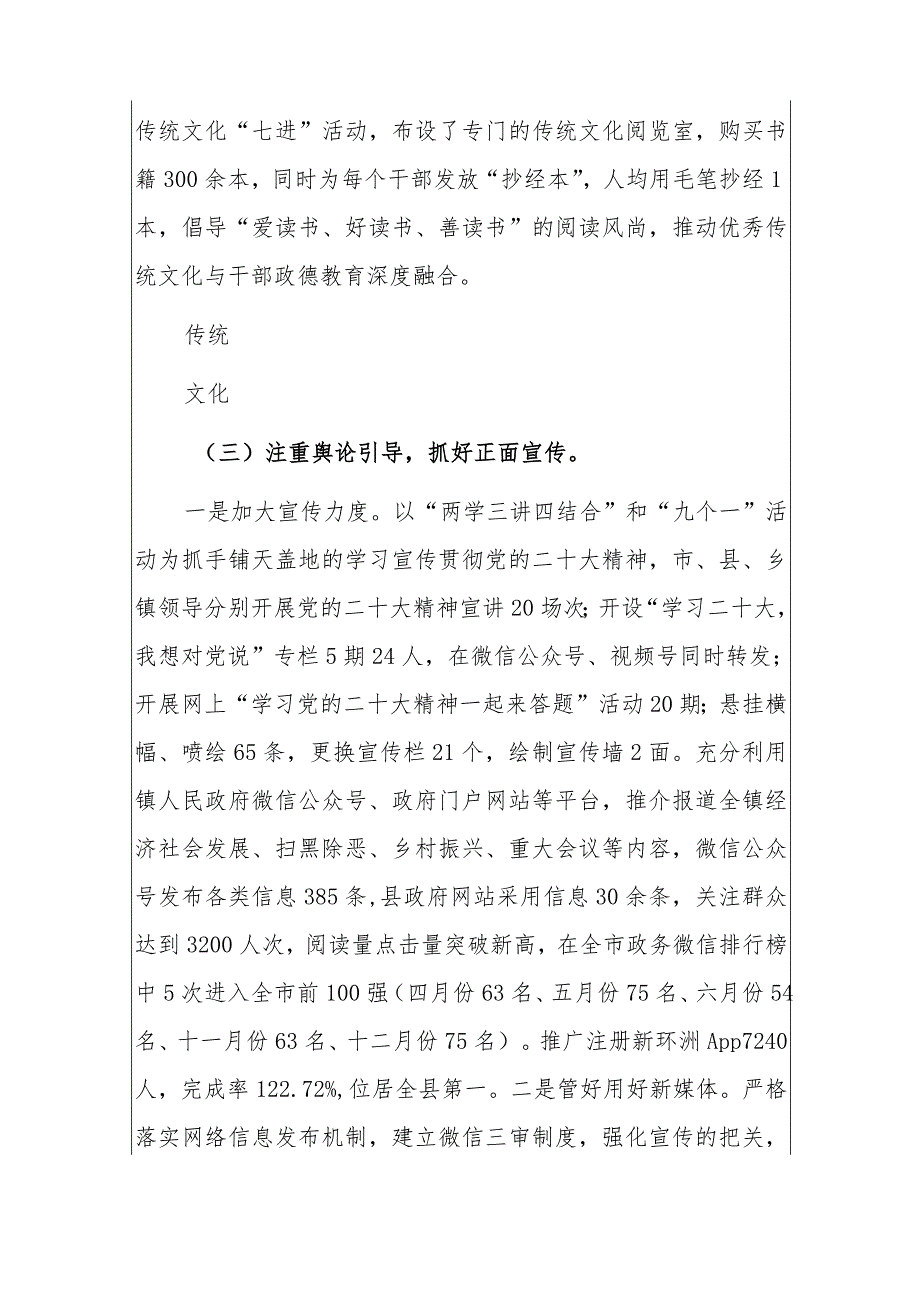 传统文化“七进”活动，布设了专门的传统文化阅览室，购买书
籍300余本，同时为每个干部发放“抄经本”，人均用毛笔抄经1
本，倡导“爱读书、好读书、善读书”的阅读风尚，推动优秀传
统文化与干部政德教育深度融合。
传统
文化
（三）注重舆论引导，抓好正面宣传。
一是加大宣传力度。以“两学三讲四结合”和“九个一”活
动为抓手铺天盖地的学习宣传贯彻党的二十大精神，市、县、乡
镇领导分别开展党的二十大精神宣讲20场次；开设“学习二十大，
我想对党说”专栏5期24人，在微信公众号、视频号同时转发；
开展网上“学习党的二十大精神一起来答题”活动20期；悬挂横
幅、喷绘65条，更换宣传栏21个，绘制宣传墙2面。充分利用
镇人民政府微信公众号、政府门户网站等平台，推介报道全镇经
济社会发展、扫黑除恶、乡村振兴、重大会议等内容，微信公众
号发布各类信息385条,县政府网站采用信息30余条，关注群众
达到3200人次，阅读量点击量突破新高，在全市政务微信排行榜
中5次进入全市前100强（四月份63名、五月份75名、六月份54
名、十一月份63名、十二月份75名）。推广注册新环洲App7240
人，完成率122.72%,位居全县第一。二是管好用好新媒体。严格
落实网络信息发布机制，建立微信三审制度，强化宣传的把关，